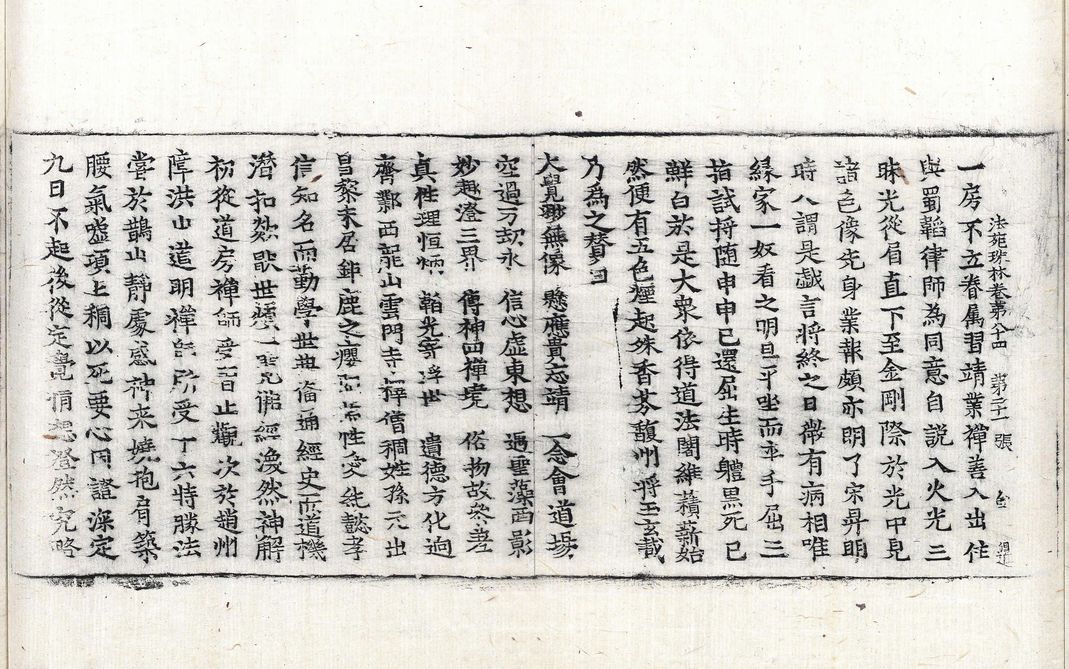 一房不立眷属習靖業禪善入出住
法苑珠林卷第八十四 第二十一張
與蜀韜律師為同意自說入火光三
昧光從眉直下至金剛際於光中見
諸色像先身業報頗亦明了宋昇明
時人謂是戯言將終之日微有病相唯
緣家一奴看之明旦平坐而卒手屈三
指試捋随申申已還屈生時軆黒死已
鮮白於是大衆依得道法闍維蘋薪始
然便有五色煙起殊香芬馥州將王玄載
乃為之賛曰
大覺眇無像 懸應貴忘靖 一念會道場
空過万劫永 信心虚東想 遍聖藻西影
妙趣澄三界 傳神四禪境 俗物故參差
真性理恒炳 韜光寄浮世 遺德方化逈
齊鄴西龍山雲門寺釋僧稠姓孫元出
昌黎末居鉅鹿之癭陶焉性度純懿孝
信知名而勤學世典俻通經史而道機
潜扣欻猒世煩一覧佛經渙然神解
初從道房禪師受習止觀次於趙州
障洪山道明禪師所受十六特勝法
嘗於鵲山静處感神来嬈抱肩築
腰氣嘘項上稠以死要心因證深定
九日不起後從定覺情想澄然究略